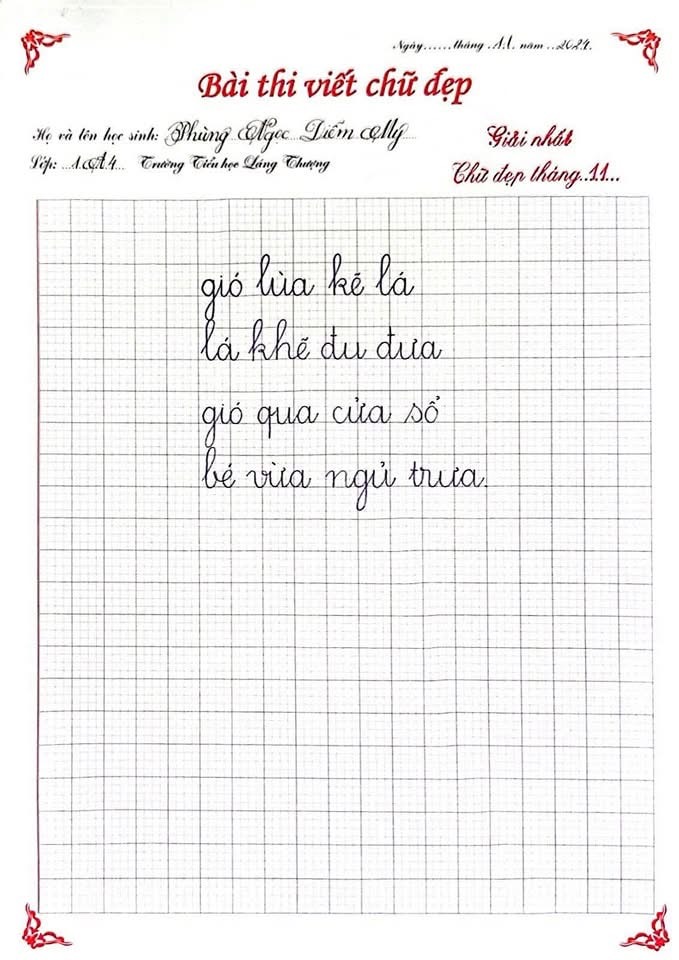 Ngày......tháng .11. năm ..2024.
Bài thi viết chữ đẹp
Họ và tên học sinh: Phùng Ngọc Diễm My
Giải nhất
Lớp: ...1A4... Trường Tiểu học Láng Thượng
Chữ đẹp tháng..11...
gió lùa kẽ lá
lá khẽ đu đưa
gió qua cửa sổ
bé vừa ngủ trưa.